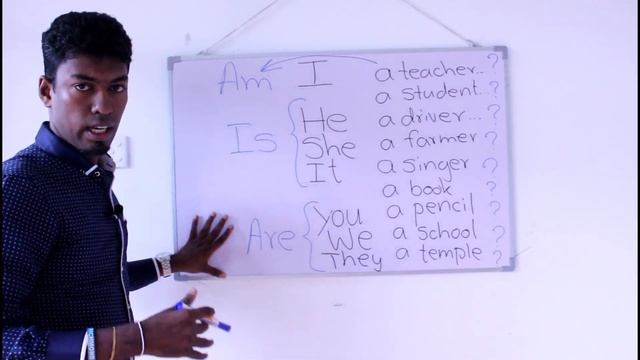 Am I a teacher..?
a student..?
Is He a driver...?
She a farmer?
It a singer?
a book ?
Are you a pencil ?
We a school ?
They a temple ?